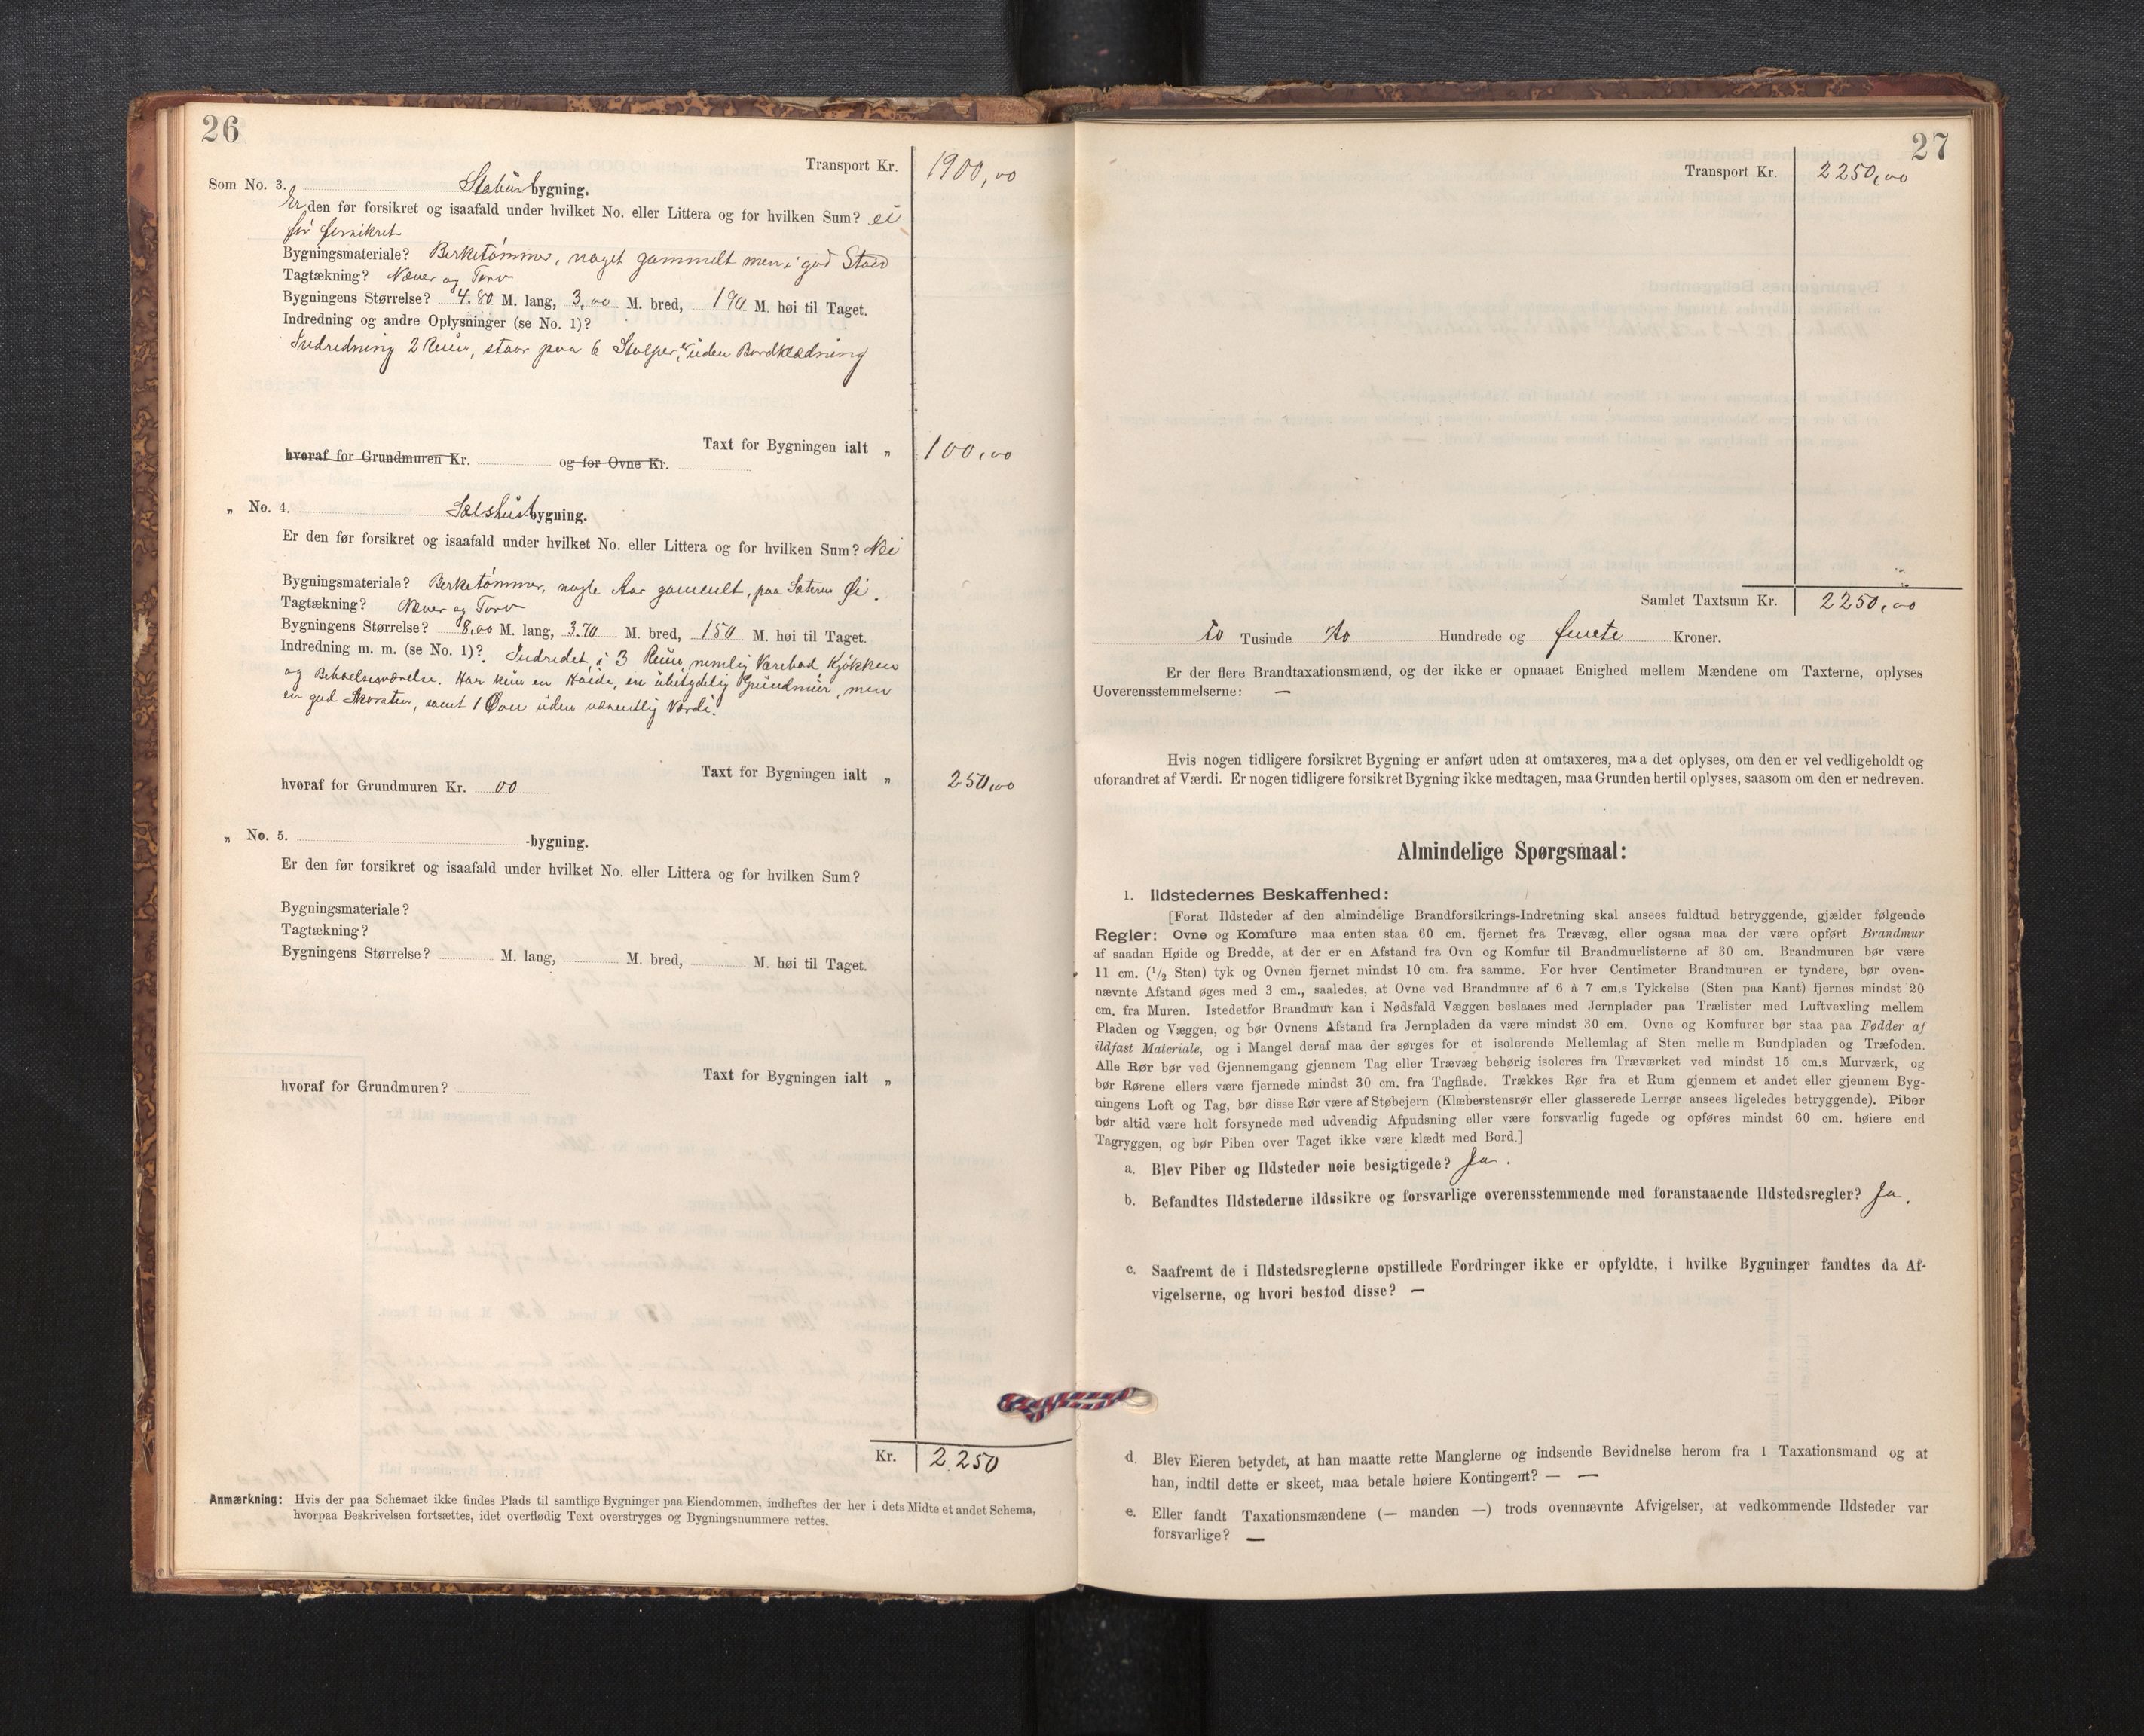 26
Transport Kr. 1900,00
Som No. 3. Stabursbygning.
Er den før forsikret og isaafald under hvilket No. eller Littera og for hvilken Sum? ei
før forsikret
Bygningsmateriale? Birketømmer, noget gammelt men i god Stand
Tagtækning? Næver og Torv
Bygningens Størrelse? 4.80 M. lang, 3,00 M. bred, 190 M. høi til Taget.
Indredning og andre Oplysninger (se No. 1)?
Indredning 2 Rum, staar paa 6 Stolper, er uden Bordklædning
Taxt for Bygningen ialt „ 100,00
hvoraf for Grundmuren Kr. og for Ovne Kr.
„ No. 4. Sælshusbygning.
Er den før forsikret og isaafald under hvilket No. eller Littera og for hvilken Sum? Nei
Bygningsmateriale? Birketømmer, nogle Aar gammelt, paa Sæteren Øi.
Tagtækning? Næver og Torv
Bygningens Størrelse? 8,00 M. lang, 3.70 M. bred, 150 M. høi til Taget.
Indredning m. m. (se No. 1)? Indredet i 3 Rum, nemlig Kjøkken
og Har kun en en ubetydelig Grundmur, men
en god Skorsten, samt 1 Ovn uden væsentlig Værdi.
Taxt for Bygningen ialt „ 250,00
hvoraf for Grundmuren Kr. 00
„ No. 5. -bygning.
Er den før forsikret og isaafald under hvilket No. eller Littera og for hvilken Sum?
Bygningsmateriale?
Tagtækning?
Bygningens Størrelse? M. lang, M. bred, M. høi til Taget.
Taxt for Bygningen ialt „
hvoraf for Grundmuren?
Kr. 2250
Anmærkning: Hvis der paa Schemaet ikke findes Plads til samtlige Bygninger paa Eiendommen, indheftes der her i dets Midte et andet Schema,
hvorpaa Beskrivelsen fortsættes, idet overflødig Text overstryges og Bygningsnummere rettes.
27
Transport Kr. 2250,00
Samlet Taxtsum Kr. 2250,00
to Tusinde to Hundrede og femti Kroner.
Er der flere Brandtaxationsmænd, og der ikke er opnaaet Enighed mellem Mændene om Taxterne, oplyses
Uoverensstemmelserne: —
Hvis nogen tidligere forsikret Bygning er anført uden at omtaxeres, maa det oplyses, om den er vel vedligeholdt og
uforandret af Værdi. Er nogen tidligere forsikret Bygning ikke medtagen, maa Grunden hertil oplyses, saasom om den er nedreven.
Almindelige Spørgsmaal:
1. Ildstedernes Beskaffenhed:
[Forat Ildsteder af den almindelige Brandforsikrings-Indretning skal ansees fuldtud betryggende, gjælder følgende
Regler: Ovne og Komfure maa enten staa 60 cm. fjernet fra Trævæg, eller ogsaa maa der være opført Brandmur
af saadan Høide og Bredde, at der er en Afstand fra Ovn og Komfur til Brandmurlisterne af 30 cm. Brandmuren bør være
11 cm. (1/2 Sten) tyk og Ovnen fjernet mindst 10 cm. fra samme. For hver Centimeter Brandmuren er tyndere, bør oven-
nævnte Afstand øges med 3 cm., saaledes, at Ovne ved Brandmure af 6 à 7 cm.s Tykkelse (Sten paa Kant) fjernes mindst 20
cm. fra Muren. Istedetfor Brandmur kan i Nødsfald Væggen beslaaes med Jernplader paa Trælister med Luftvexling mellem
Pladen og Væggen, og bør Ovnens Afstand fra Jernpladen da være mindst 30 cm. Ovne og Komfurer bør staa paa Fødder af
ildfast Materiale, og i Mangel deraf maa der sørges for et isolerende Mellemlag af Sten mellem Bundpladen og Træfoden.
Alle Rør bør ved Gjennemgang gjennem Tag eller Trævæg behørig isoleres fra Træværket ved mindst 15 cm.s Murværk, og
bør Rørene ellers være fjernede mindst 30 cm. fra Tagflade. Trækkes Rør fra et Rum gjennem et andet eller gjennem Byg-
ningens Loft og Tag, bør disse Rør være af Støbejern (Klæberstensrør eller glasserede Lerrør ansees ligeledes betryggende). Piber
bør altid være holt forsynede med udvendig Afpudsning eller være forsvarlig fugede og opføres mindst 60 cm. høiere end
Tagryggen, og bør Piben over Taget ikke være klædt med Bord.]
a. Blev Piber og Ildsteder nøie besigtigede? Ja.
b. Befandtes Ildstederne ildssikre og forsvarlige overensstemmende med foranstaaende Ildstedsregler? Ja.
c. Saafremt de i Ildstedsreglerne opstillede Fordringer ikke er opfyldte, i hvilke Bygninger fandtes da Af-
vigelserne, og hvori bestod disse? —
d. Blev Eieren betydet, at han maatte rette Manglerne og indsende Bevidnelse herom fra 1 Taxationsmand og at
han, indtil dette er skeet, maa betale høiere Kontingent? — —
e. Eller fandt Taxationsmændene (— manden —) trods ovennævnte Afvigelser, at vedkommende Ildsteder var
forsvarlige? —